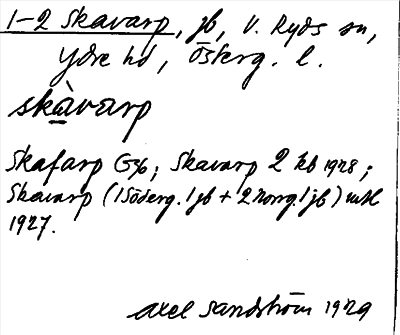 1-2 Skavarp, jb, V. Ryds sn,
Ydre hd, Österg. l.
skàvarp
Skafarp G36; Skavarp 2 kb 1928;
Skavarp (1 Söderg. 1 jb + 2 Norrg. 1 jb) mtl
1927.
Axel Sandström 1929